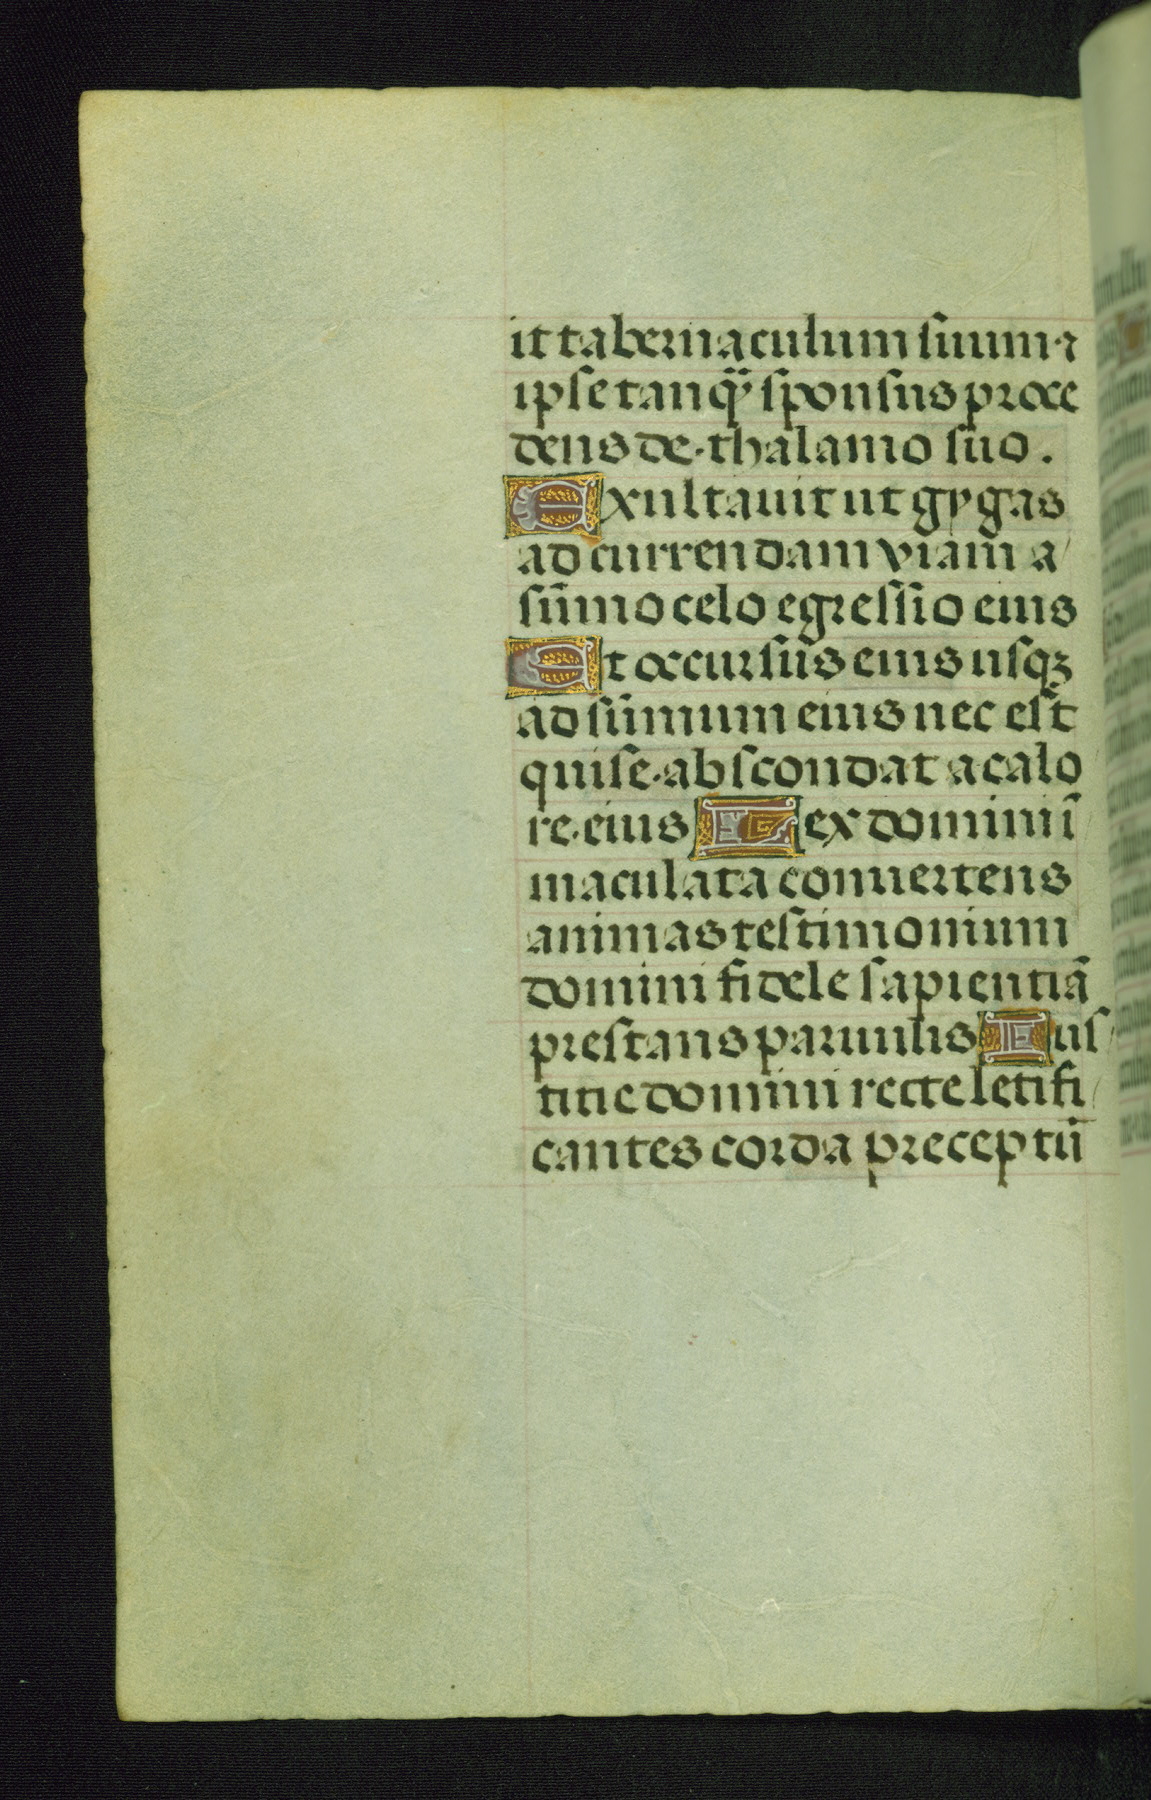 it tabernaculum suum · ⁊
ipse tanq̈ sponsus proce
dens de · thalamo suo .
Exultauit ut gygas
ad currendam viam a
sūmo celo egressio eius
Et occursus eius usqꝫ
ad sūmum eius nec est
qui se · abscondat a calo
re · eius Lex domini ī
maculata conuertens
animas testimonium
domini fidele sapientiā
prestans paruulis Ius
titie domini recte letifi
cantes corda preceptū